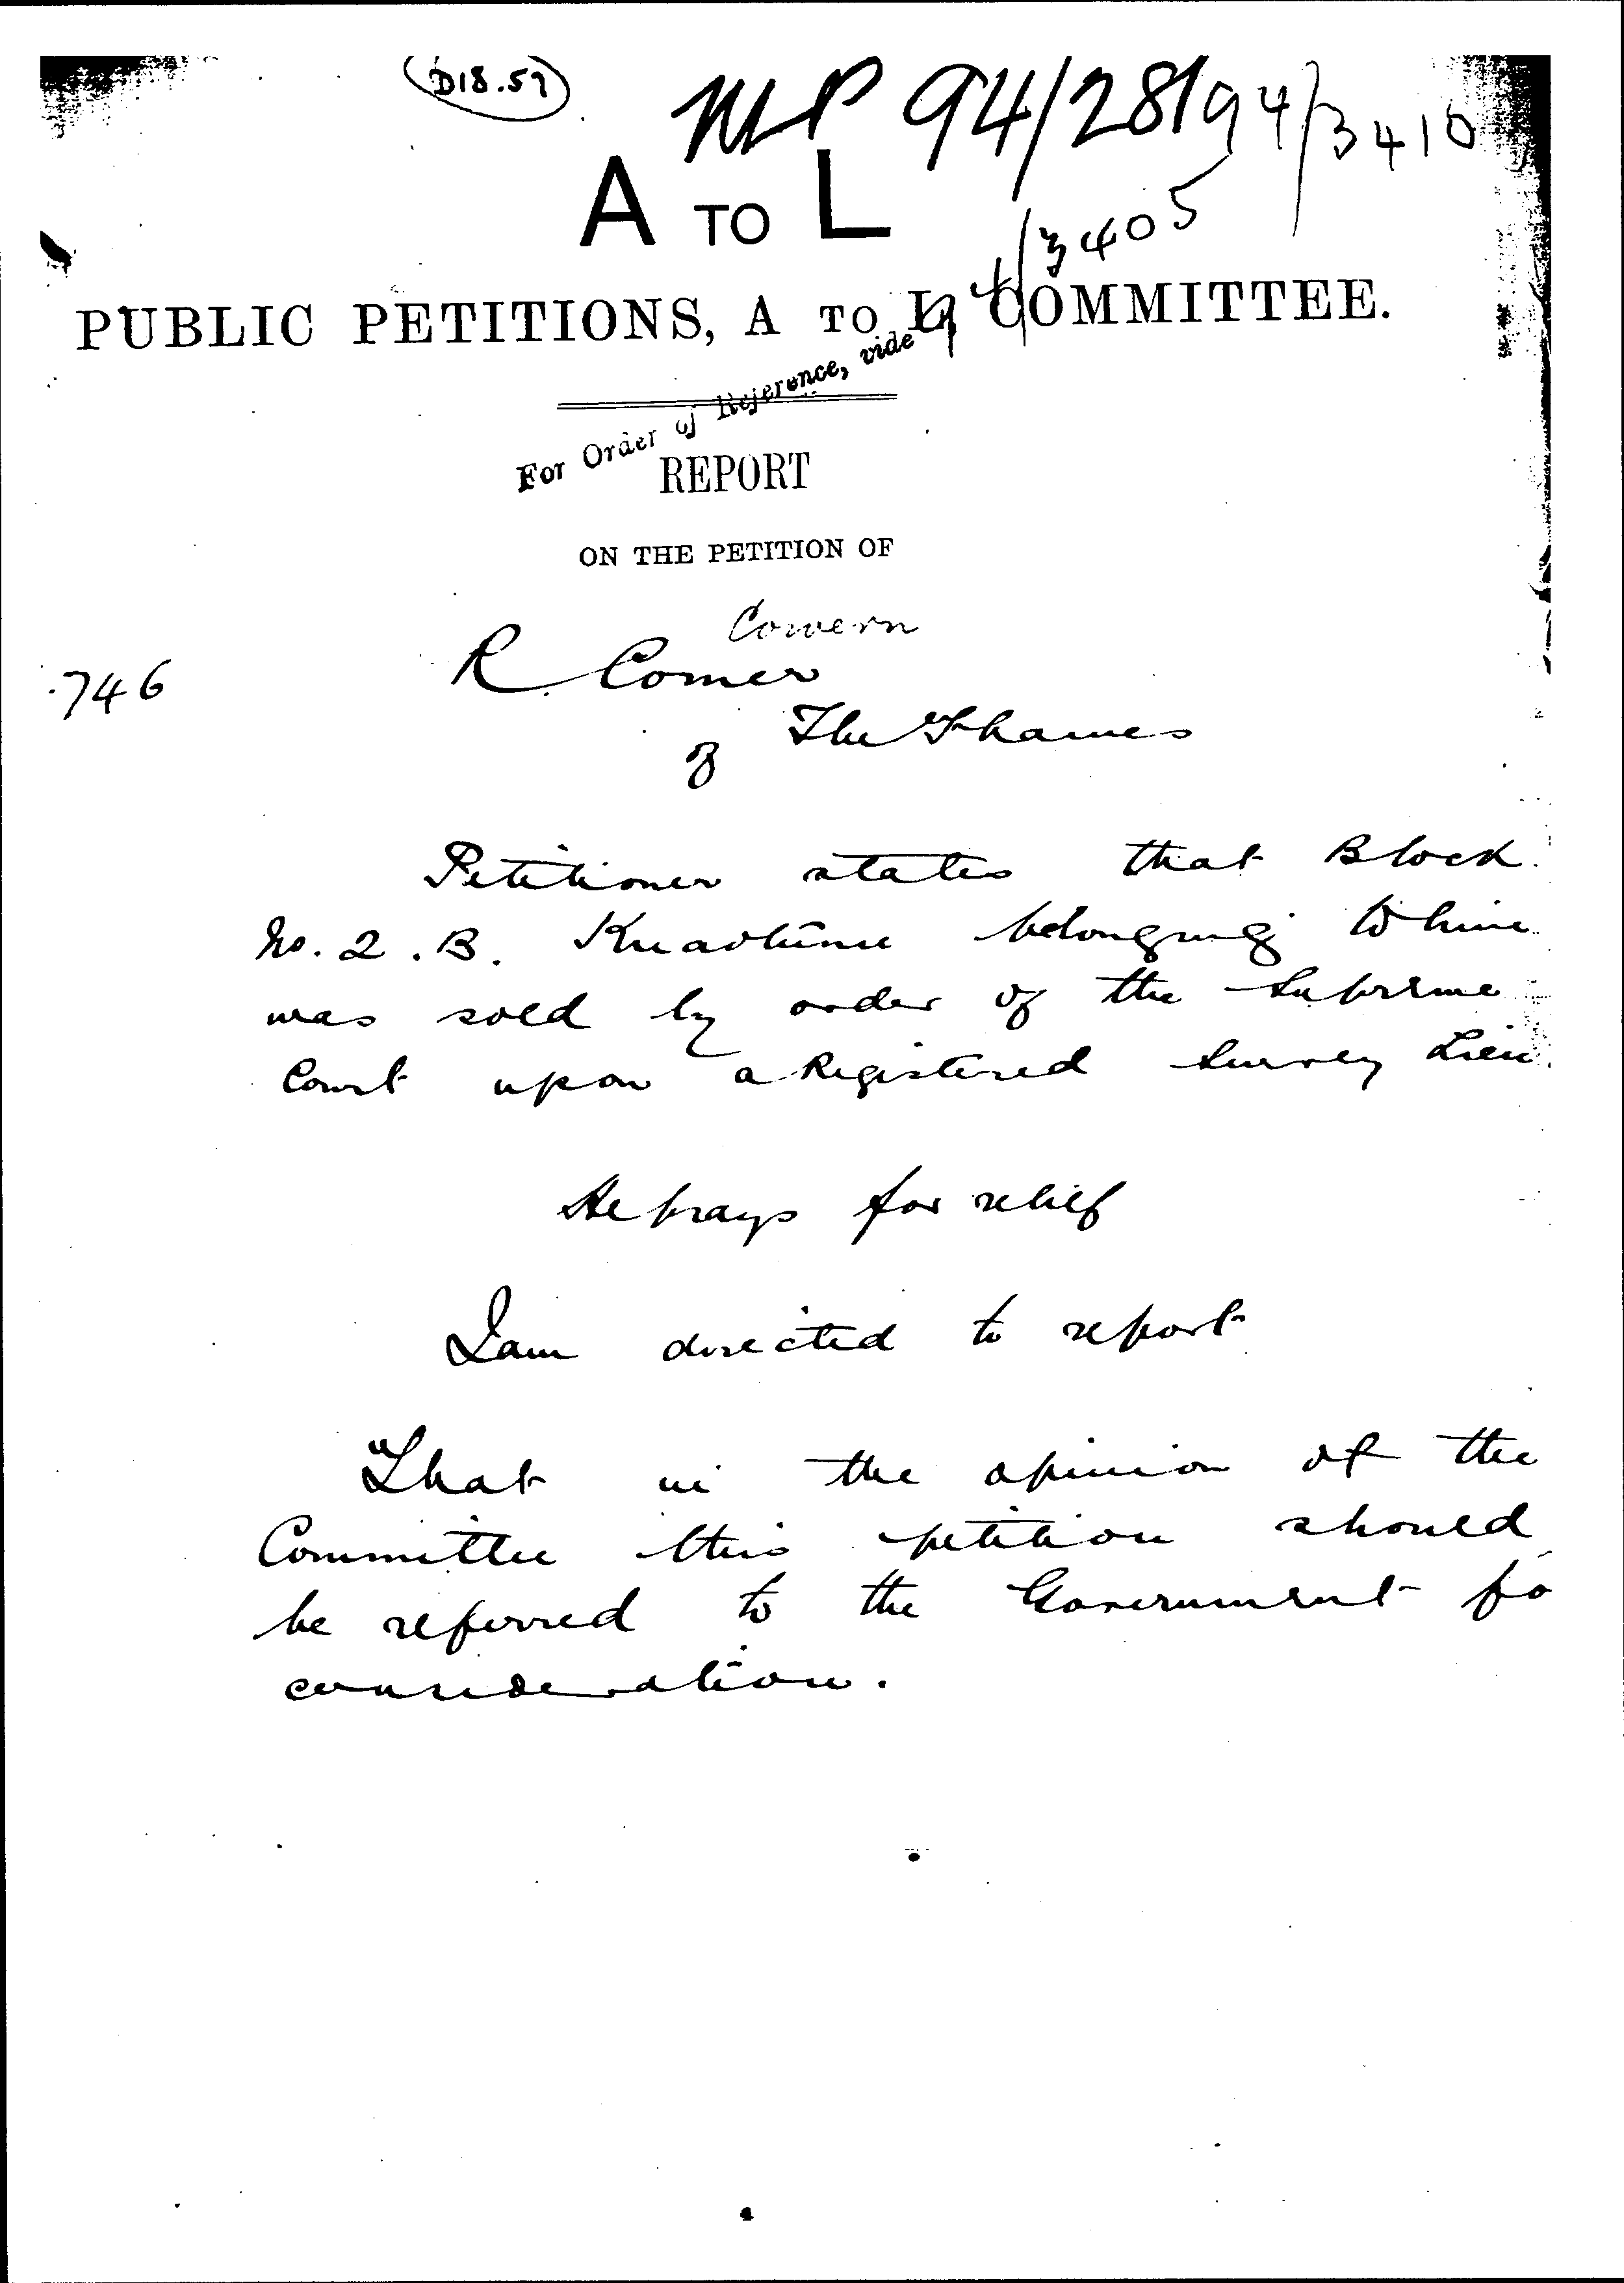 D18.57
MP 94/281 94/3410
A TO L
94/3405
PUBLIC PETITIONS, A TO L COMMITTEE.
For Order of Reference, vide
REPORT
ON THE PETITION OF
Cowern
746 R. Comer
of The Thames
Petitioner states that Block
No. 2. B. belonging to him
was sold by order of the Supreme
Court upon a Registered Survey Lien.
He prays for relief
I am directed to report
"That in the opinion of the
Committee this petition should
be referred to the Government fo
consideration.